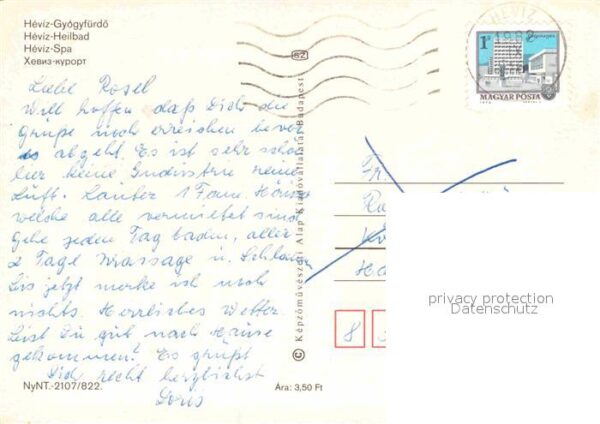 Hévíz-Gyógyfürdő
Hévíz-Heilbad
Hévíz-Spa
Хевиз-курорт
Liebe Rosel
Will hoffen daß Dich die
Grüße noch erreichen bevor
es abgeht. Es ist sehr schön
hier keine Industrie reine
Luft. Lauter 1 Fam. Häuser
welche alle vermietet sind
Gehe jeden Tag baden, aller
2 Tage Massage u. Schlamm
Bis jetzt merke ich noch
nichts. Herrliches Wetter.
Bist Du gut nach Hause
gekommen? Es grüßt
Dich recht herzlichst
Doris
NyNT.-2107/822.
Ára: 3,50 Ft
© Képzőművészeti Alap Kiadóvállalata, Budapest
82
HÉVÍZ
1 Ft
MAGYAR POSTA
Fr.
8
privacy protection
Datenschutz